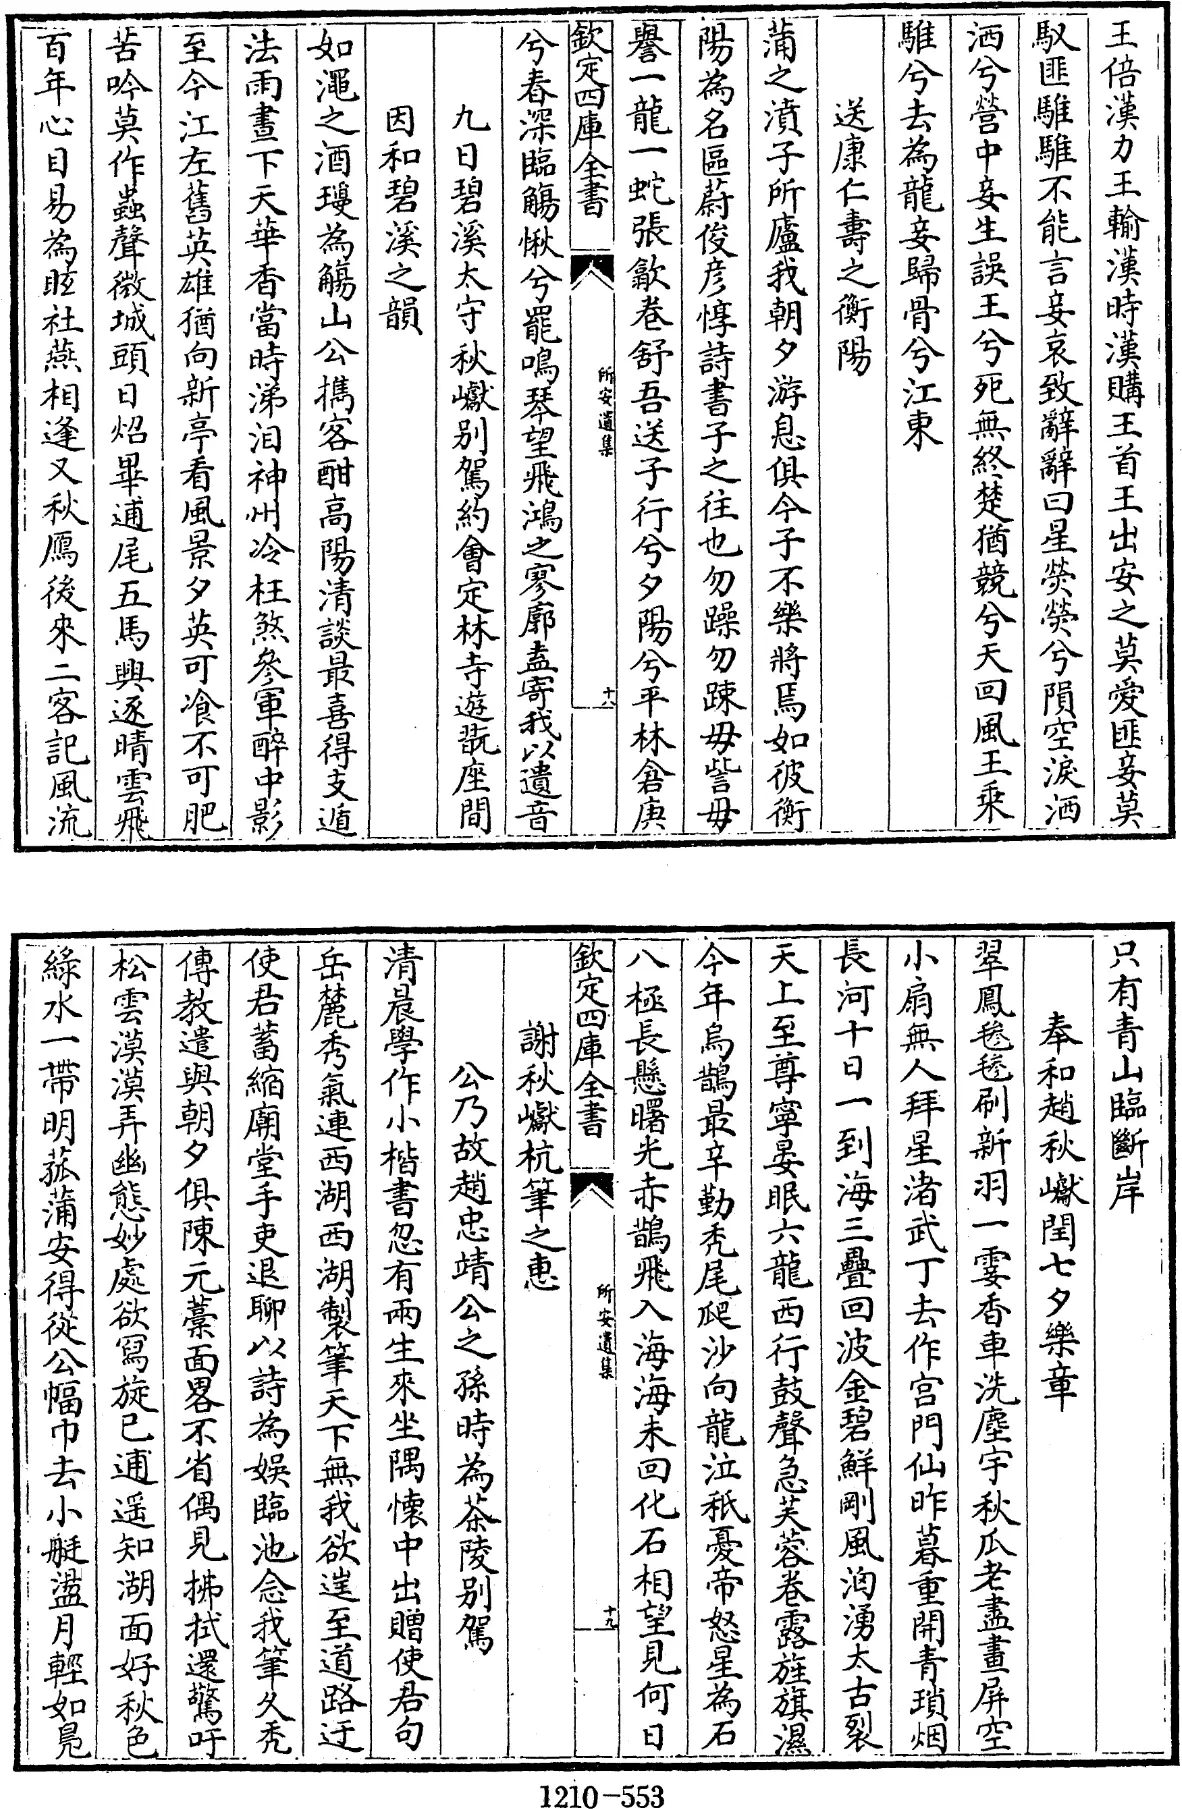 王倍漢力王輸漢時漢購王首王出安之莫愛匪妾莫
馭匪騅騅不能言妾哀致辭辭曰星熒熒兮隕空淚洒
洒兮營中妾生誤王兮死無終楚猶競兮天回風王乘
騅兮去為龍妾歸骨兮江東
送康仁壽之衡陽
蒲之濆子所廬我朝夕游息俱今子不樂將焉如彼衡
陽為名區蔚俊彦惇詩書子之往也勿躁勿踈毋訾毋
譽一龍一蛇張歙卷舒吾送子行兮夕陽兮平林倉庚
欽定四庫全書
所安遺集
十八
兮春深臨觴愀兮罷鳴琴望飛鴻之寥廓盍寄我以遺音
九日碧溪太守秋巘别駕約會定林寺遊翫座間
因和碧溪之韻
如澠之酒璞為觴山公擕客酣高陽清談最喜得支遁
法雨晝下天華香當時涕泪神州冷枉煞參軍醉中影
至今江左舊英雄猶向新亭看風景夕英可飡不可肥
苦吟莫作蟲聲微城頭日炤畢逋尾五馬興逐晴雲飛
百年心目易為眩社燕相逢又秋鴈後來二客記風流
只有青山臨斷岸
奉和趙秋巘閏七夕樂章
翠鳳毿毿刷新羽一霎香車洗塵宇秋瓜老盡畫屏空
小扇無人拜星渚武丁去作宫門仙昨暮重開青瑣烟
長河十日一到海三疊回波金碧鮮剛風洶湧太古裂
天上至尊寧晏眠六龍西行鼓聲急芙蓉卷露旌旗濕
今年烏鵲最辛勤秃尾爬沙向龍泣秖憂帝怒星為石
八極長懸曙光赤鵲飛入海海未回化石相望見何日
欽定四庫全書
所安遺集
十九
謝秋巘杭筆之惠
公乃故趙忠靖公之孫時為茶陵别駕
清晨學作小楷書忽有兩生來坐隅懷中出贈使君句
岳麓秀氣連西湖西湖製筆天下無我欲逞至道路迂
使君蓄縮廟堂手吏退聊以詩為娱臨池念我筆久秃
傳教遣與朝夕俱陳元藁面畧不省偶見拂拭還驚吁
松雲漠漠弄幽態妙處欲寫旋已逋遥知湖面好秋色
緑水一帶明菰蒲安得從公幅巾去小艇盪月輕如鳬
1210-553